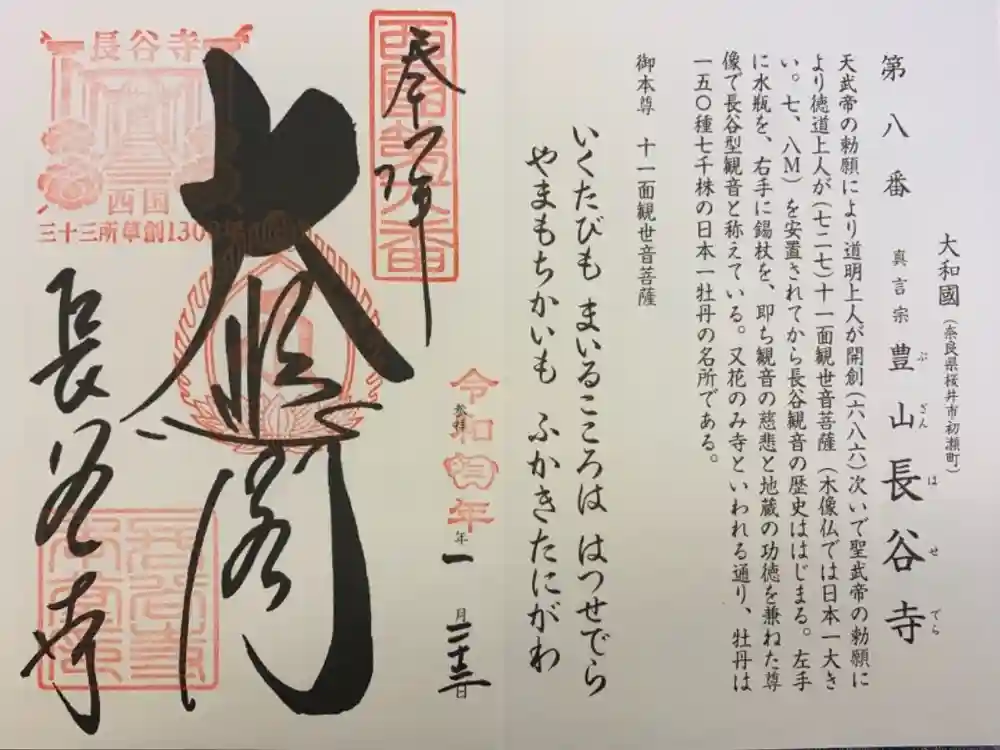 大和國(奈良県桜井市初瀬町)
第八番 真言宗 豊山長谷寺
ぶ ざん は せ でら
天武帝の勅願により道明上人が開創(六八六)次いで聖武帝の勅願に
より徳道上人が(七二七)十一面観世音菩薩(木像仏では日本一大き
い。七、八M)を安置されてから長谷観音の歴史ははじまる。左手
に水瓶を、右手に錫杖を、即ち観音の慈悲と地蔵の功徳を兼ねた尊
像で長谷型観音と称えている。又花のみ寺といわれる通り、牡丹は
一五〇種七千株の日本一牡丹の名所である。
御本尊 十一面観世音菩薩
いくたびも まいるこころは はつせでら
やまもちかいも ふかきたにがわ
西国第八番
奉拝
参拝
令和四年
年一月二十三日
大悲閣
長谷寺
長谷寺
西国
三十三所草創1300年